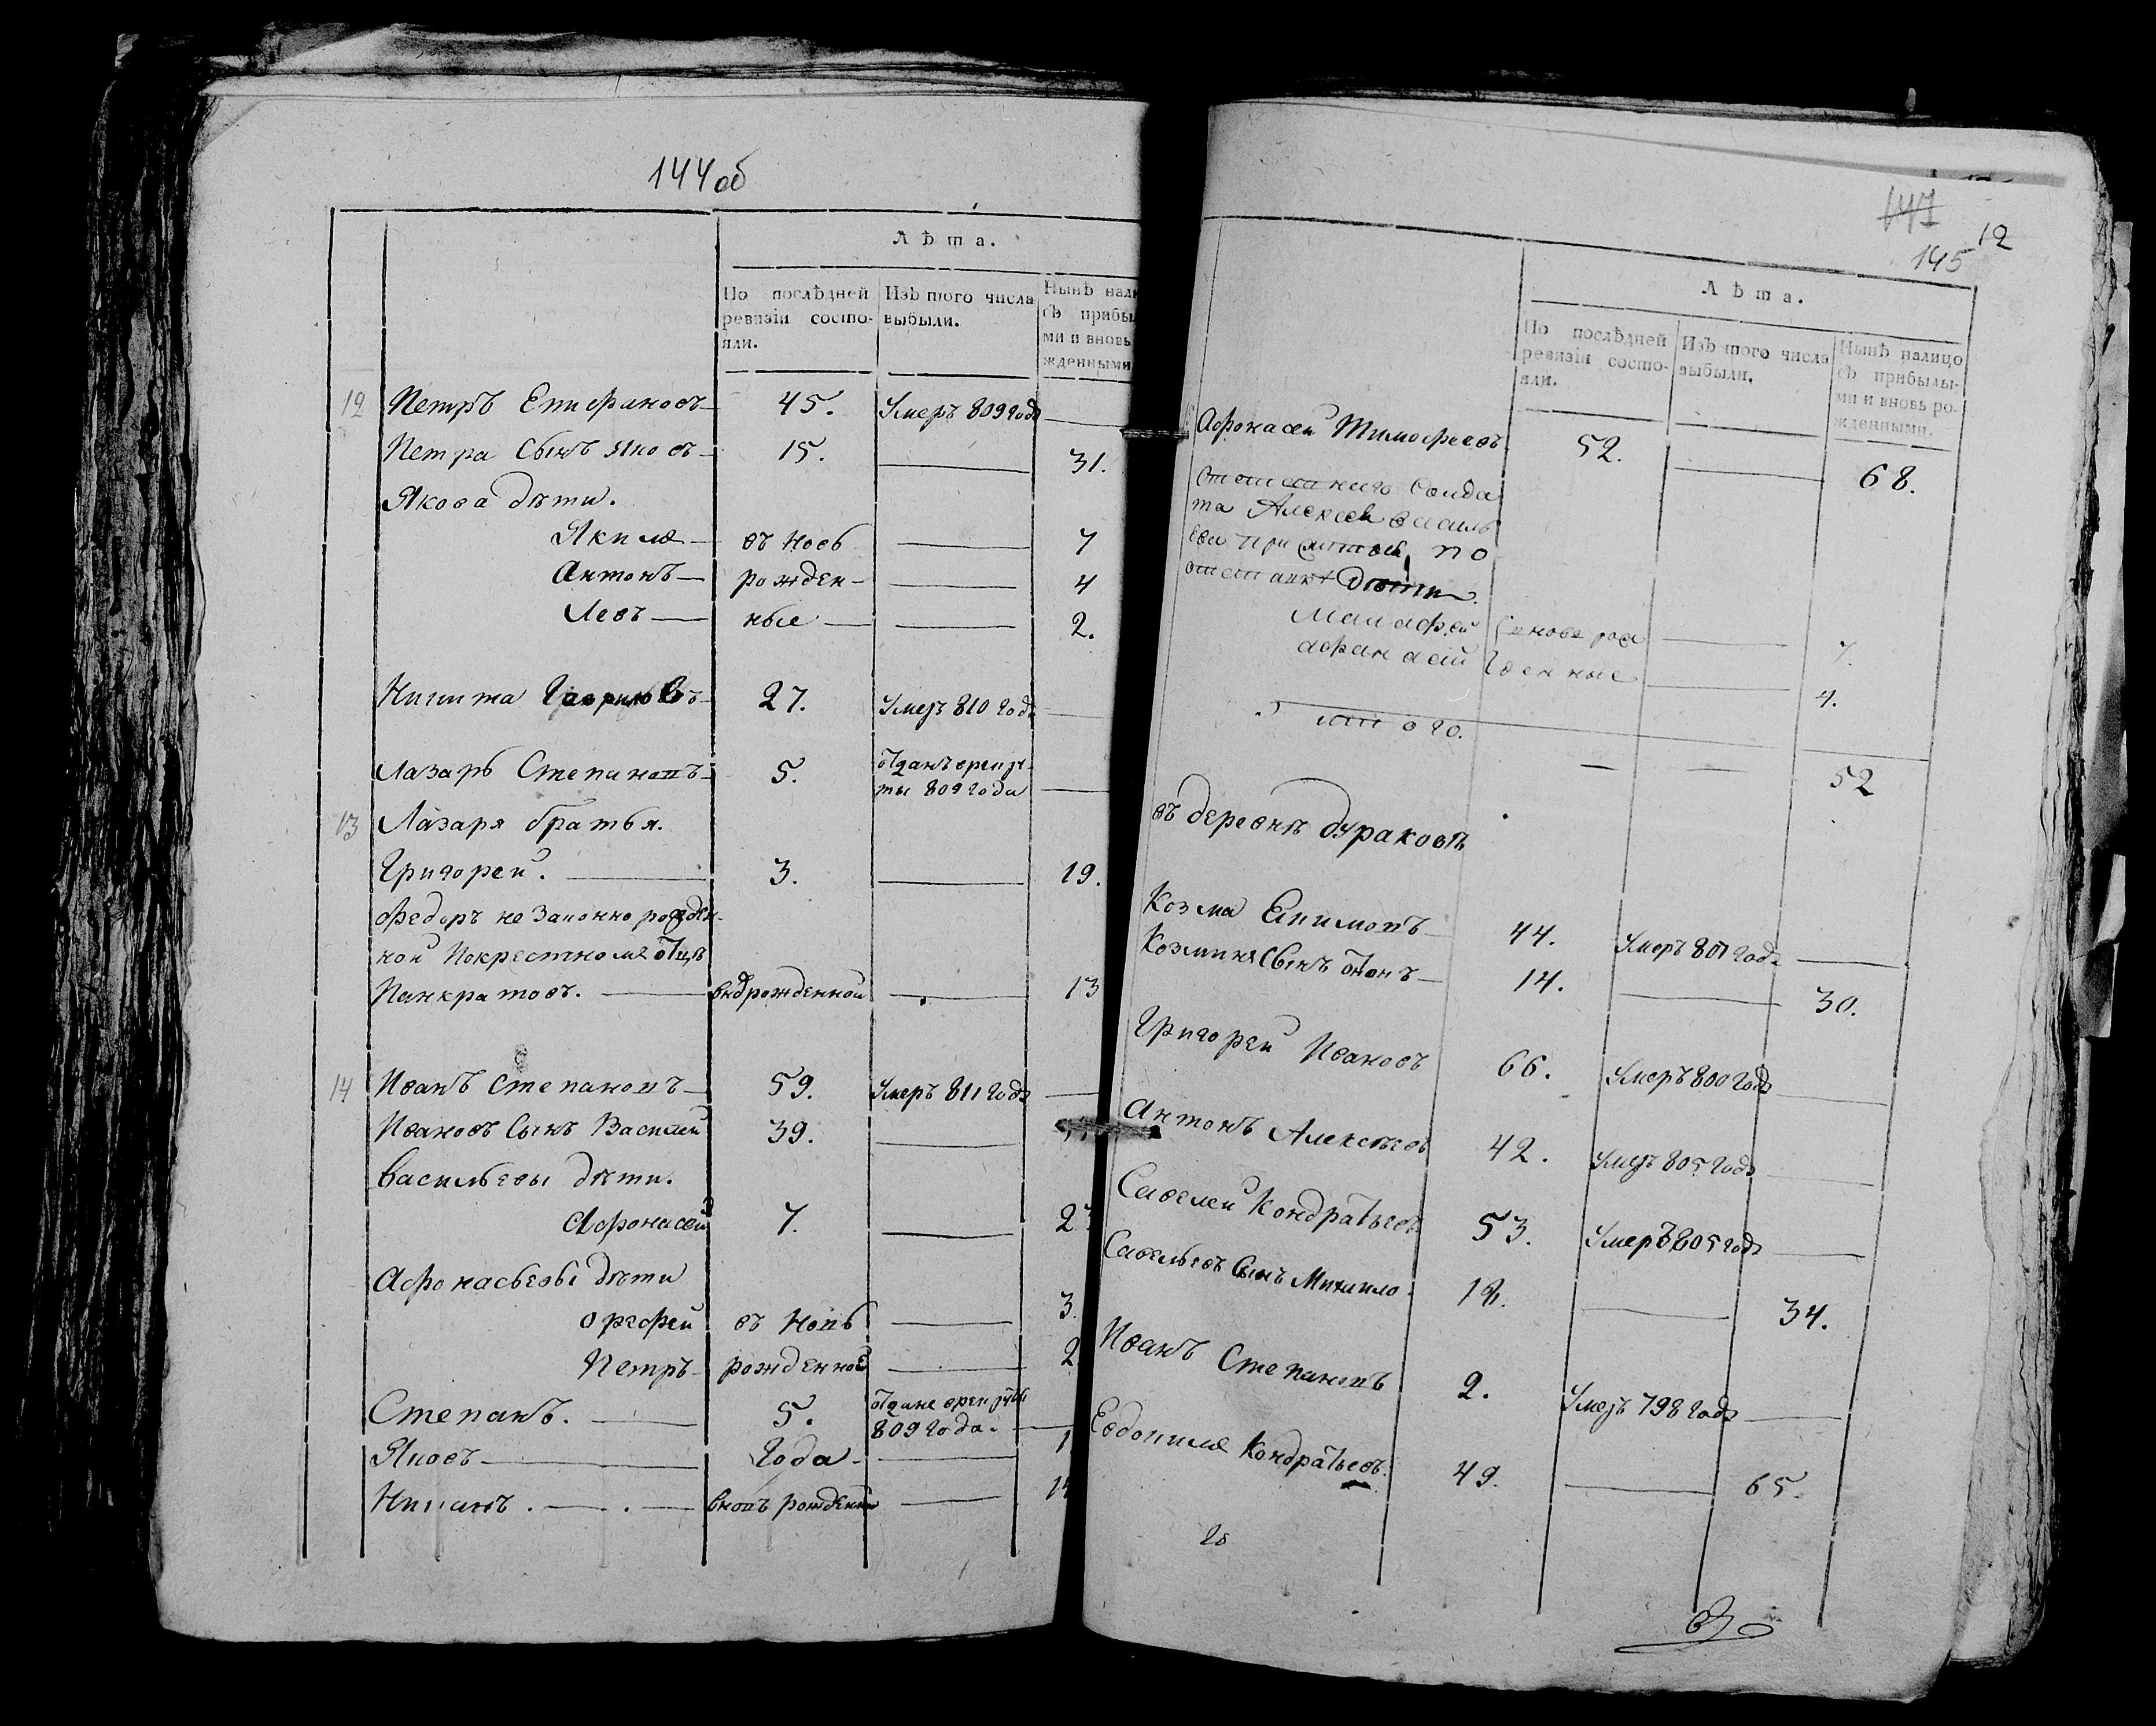 144 об
Лѣта.
По послѣдней ревизіи состояли.
Изъ того числа выбыли.
Нынѣ нали
съ прибы
ми и вновь
жденными
12 Петръ Епифановъ 45. Умеръ 809 года
Петра сынъ Яковъ 15. 31.
Якова дѣти.
Якимъ въ новь 7
Антонъ рожден- 4
Левъ ные 2.
Никита Гавриловъ 27. Умеръ 810 года
Лазарь Степановъ 5. отданъ в рекру-
ты 809 года
13 Лазаря братья.
Григореи. 3. 19.
Федоръ не законно рожден-
нои по крестному отцѣ
Панкратовъ. внврожденной 13
14 Иванъ Степановъ 59. Умеръ 811 года
Ивановъ сынъ Василей 39.
Васильевы дѣти.
Афонасей 7. 2
Афонасьевы дѣти
Орефей въ новь 3.
Петръ рожденное 2
Степанъ. 5. отдане в рекруты
809 года.
Яковъ года 1
вновь рожденны 1
147
12
145
Лѣта.
По послѣдней ревизіи состояли.
Изъ того числа выбыли.
Нынѣ налицо съ прибылыми и вновь рожденными.
Афонасеи Тимофеевъ 52. 68.
солда
та Алексея Василь
ева по
дѣти
Малафей вновь рож 7.
Афанасій денные 4.
итого. 52
въ деревнѣ дураковѣ
Козма Екимовъ 44. Умеръ 801 года
Козминъ сынъ 14. 30.
Григореи Ивановъ 66. Умеръ 800 года
Антонъ Алексѣевъ 42. Умеръ 805 года
Савелеи Кондратьевъ 53. Умеръ 805 года
Савельевъ сынъ Михаило. 18. 34.
Иванъ Степановъ 2. Умеръ 798 года
Евдокимъ Кондратьевъ. 49. 65.